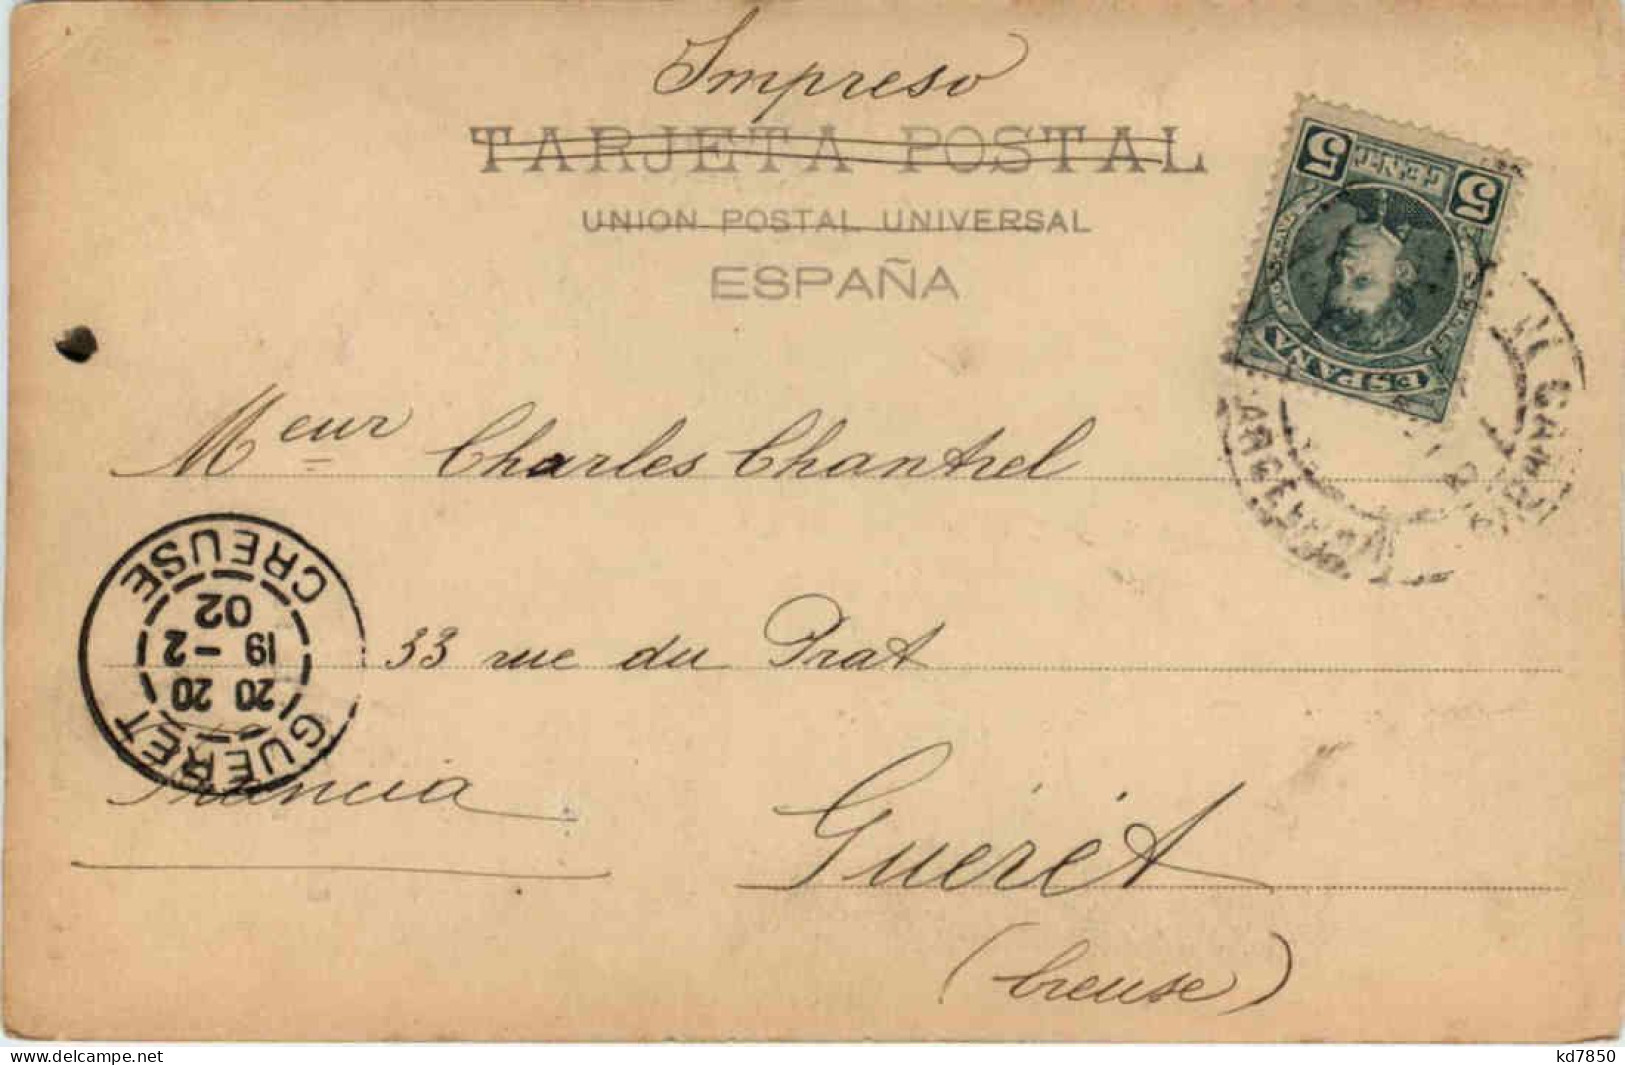 Impreso
TARJETA POSTAL
UNION POSTAL UNIVERSAL
ESPAÑA
5 CENTS 5
ESPAÑA
Meur Charles Chantrel
33 rue du Prat
Francia
Guéret
(Creuse)
GUERET
20 20
19 - 2
02
CREUSE
kd7850